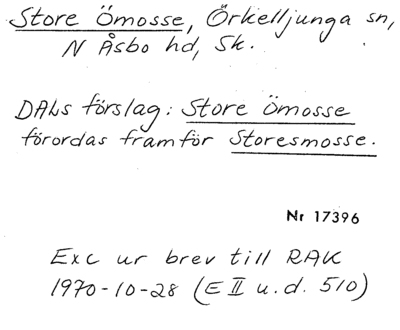 Store Ömosse, Örkelljunga sn,
N Åsbo hd, Sk.
DALs förslag: Store Ömosse
förordas framför Storesmosse.
Nr 17396
Exc ur brev till RAK
1970-10-28 (E II u.d. 510)